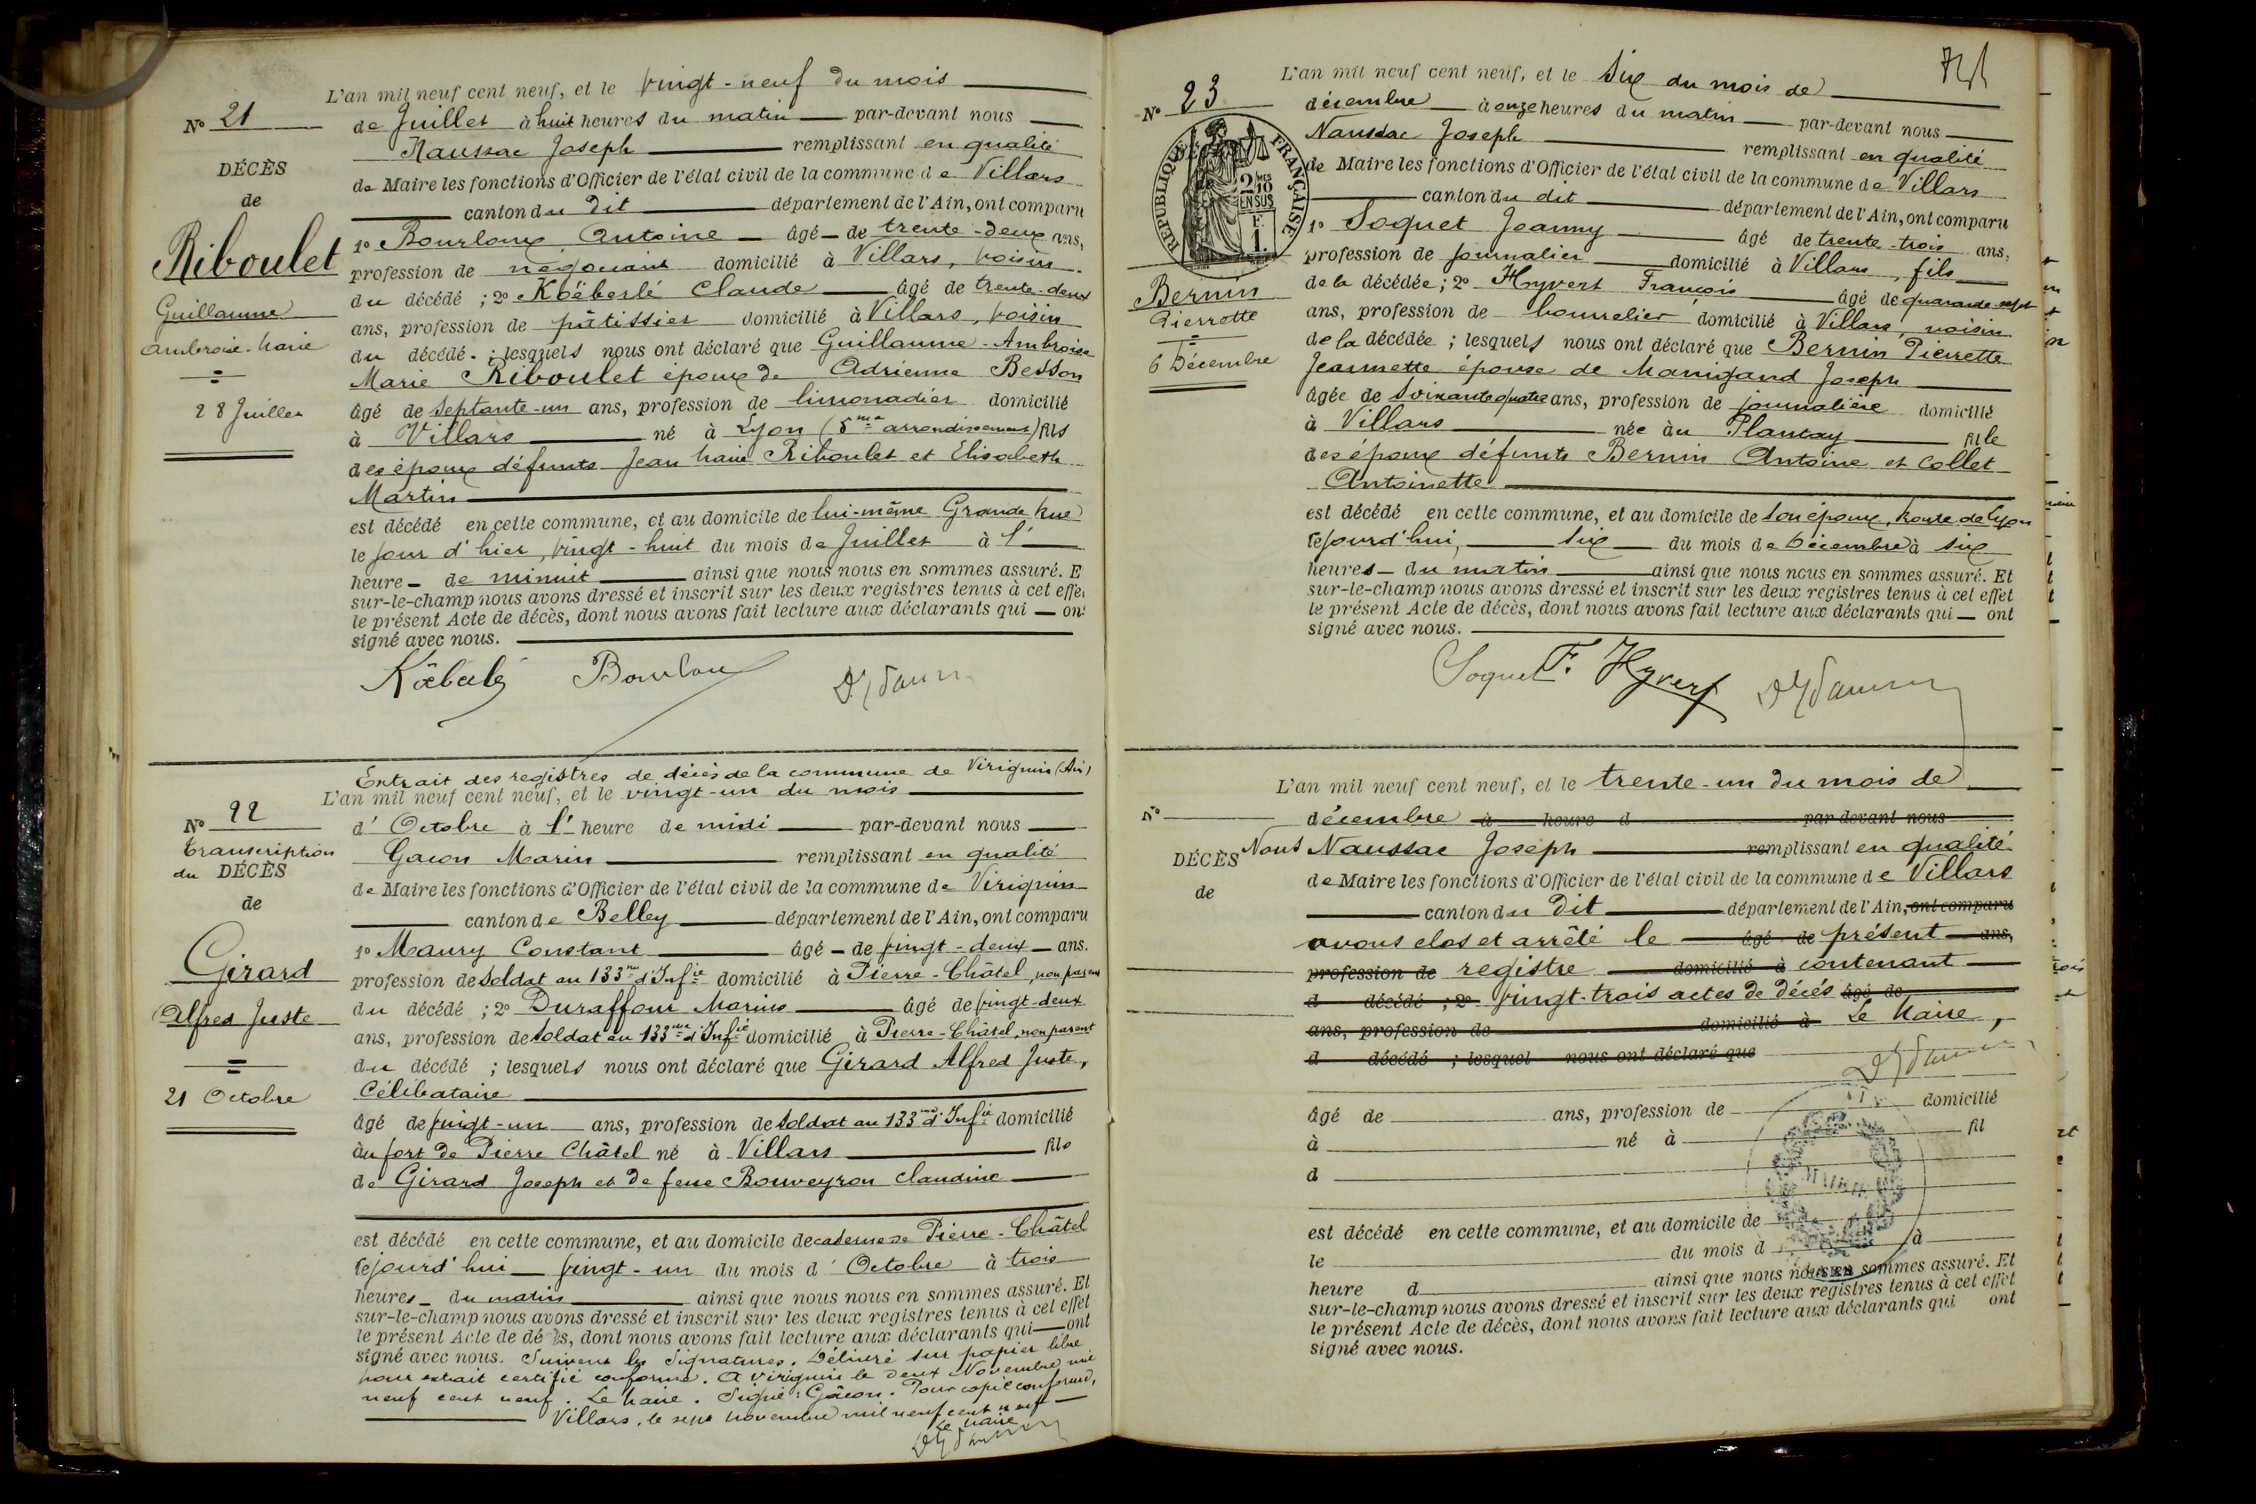 L'an mil neuf cent neuf, et le vingt-neuf du mois
N° 21
de Juillet à huit heures du matin par-devant nous
Naussac Joseph remplissant en qualité
DÉCÈS
de Maire les fonctions d'Officier de l'état civil de la commune de Villars
de
canton du dit département de l'Ain, ont comparu
Riboulet
1° Bourloux Antoine âgé de trente-deux ans,
profession de négociant domicilié à Villars, voisin
Guillaume
du décédé ; 2° Koëberlé Claude âgé de trente-deux
ans, profession de pâtissier domicilié à Villars, voisin
Ambroise-Marie
du décédé ; lesquels nous ont déclaré que Guillaume-Ambroise
Marie Riboulet époux de Adrienne Besson
28 Juillet
âgé de septante-un ans, profession de limonadier domicilié
à Villars né à Lyon (5me arrondissement) fils
des époux défunts Jean Marie Riboulet et Elisabeth
Martin
est décédé en cette commune, et au domicile de lui-même Grande Rue
le jour d'hier, vingt-huit du mois de Juillet à l'
heure de minuit ainsi que nous nous en sommes assuré. E
sur-le-champ nous avons dressé et inscrit sur les deux registres tenus à cet effe
le présent Acte de décès, dont nous avons fait lecture aux déclarants qui on
signé avec nous.
Köeberlé Bourloux
Extrait des registres de décès de la commune de Virignin (Ain)
L'an mil neuf cent neuf, et le vingt-un du mois
N° 22
d'Octobre à l'heure de midi par-devant nous
Transcription
Gacon Marin remplissant en qualité
du DÉCÈS
de Maire les fonctions d'Officier de l'état civil de la commune de Virignin
de
canton de Belley département de l'Ain, ont comparu
Girard
1° Maury Constant âgé de vingt-deux ans.
profession de soldat au 133me d'Infie domicilié à Pierre-Châtel, non parent
Alfred Juste
du décédé ; 2° Duraffour Marius âgé de vingt-deux
ans, profession de soldat au 133me d'Infie domicilié à Pierre-Châtel, non parent
du décédé ; lesquels nous ont déclaré que Girard Alfred Juste,
21 Octobre
Célibataire
âgé de vingt-un ans, profession de soldat au 133me d'Infie domicilié
au fort de Pierre Châtel né à Villars fils
de Girard Joseph et de feue Bouveyron Claudine
est décédé en cette commune, et au domicile de caserne de Pierre-Châtel
cejourd'hui vingt-un du mois d'Octobre à trois
heures du matin ainsi que nous nous en sommes assuré. Et
sur-le-champ nous avons dressé et inscrit sur les deux registres tenus à cet effet
le présent Acte de décès, dont nous avons fait lecture aux déclarants qui ont
signé avec nous. Suivent les signatures. Délivré sur papier libre
pour extrait certifié conforme. A Virignin le deux Novembre mil
neuf cent neuf. Le Maire. Signé : Gâcon. Pour copie conforme,
Villars, le sept novembre mil neuf cent neuf
Le Maire
L'an mil neuf cent neuf, et le six du mois de
N° 23
décembre à onze heures du matin par-devant nous
Naussac Joseph remplissant en qualité
RÉPUBLIQUE FRANÇAISE
2/10 EN SUS
F. 1.
de Maire les fonctions d'Officier de l'état civil de la commune de Villars
canton du dit département de l'Ain, ont comparu
1° Soquet Joanny âgé de trente-trois ans,
profession de journalier domicilié à Villars, fils
Bernin
de la décédée ; 2° Hyvert François âgé de quarante-sept
Pierrette
ans, profession de bourrelier domicilié à Villars, voisin
de la décédée ; lesquels nous ont déclaré que Bernin Pierrette
6 Décembre
Jeannette épouse de Manigand Joseph
âgée de soixante quatre ans, profession de journalière domicilié
à Villars née au Plantay fille
des époux défunts Bernin Antoine et Collet
Antoinette
est décédé en cette commune, et au domicile de son époux, Route de Lyon
cejourd'hui, six du mois de Décembre à six
heures du matin ainsi que nous nous en sommes assuré. Et
sur-le-champ nous avons dressé et inscrit sur les deux registres tenus à cet effet
le présent Acte de décès, dont nous avons fait lecture aux déclarants qui ont
signé avec nous.
Soquet F. Hyvert
L'an mil neuf cent neuf, et le trente-un du mois de
N°
décembre à heure d par-devant nous
DÉCÈS
Nous Naussac Joseph remplissant en qualité
de Maire les fonctions d'Officier de l'état civil de la commune de Villars
de
canton du dit département de l'Ain, ont comparu
avons clos et arrêté le âgé de présent ans,
profession de registre domicilié à contenant
d décédé ; 2° vingt-trois actes de décés âgé de
ans, profession de domicilié à Le Maire,
d décédé ; lesquel nous ont déclaré que
âgé de ans, profession de domicilié
à né à fil
d
MAIRIE
est décédé en cette commune, et au domicile de
le du mois d à
heure d ainsi que nous nous en sommes assuré. Et
sur-le-champ nous avons dressé et inscrit sur les deux registres tenus à cet effet
le présent Acte de décès, dont nous avons fait lecture aux déclarants qui ont
signé avec nous.